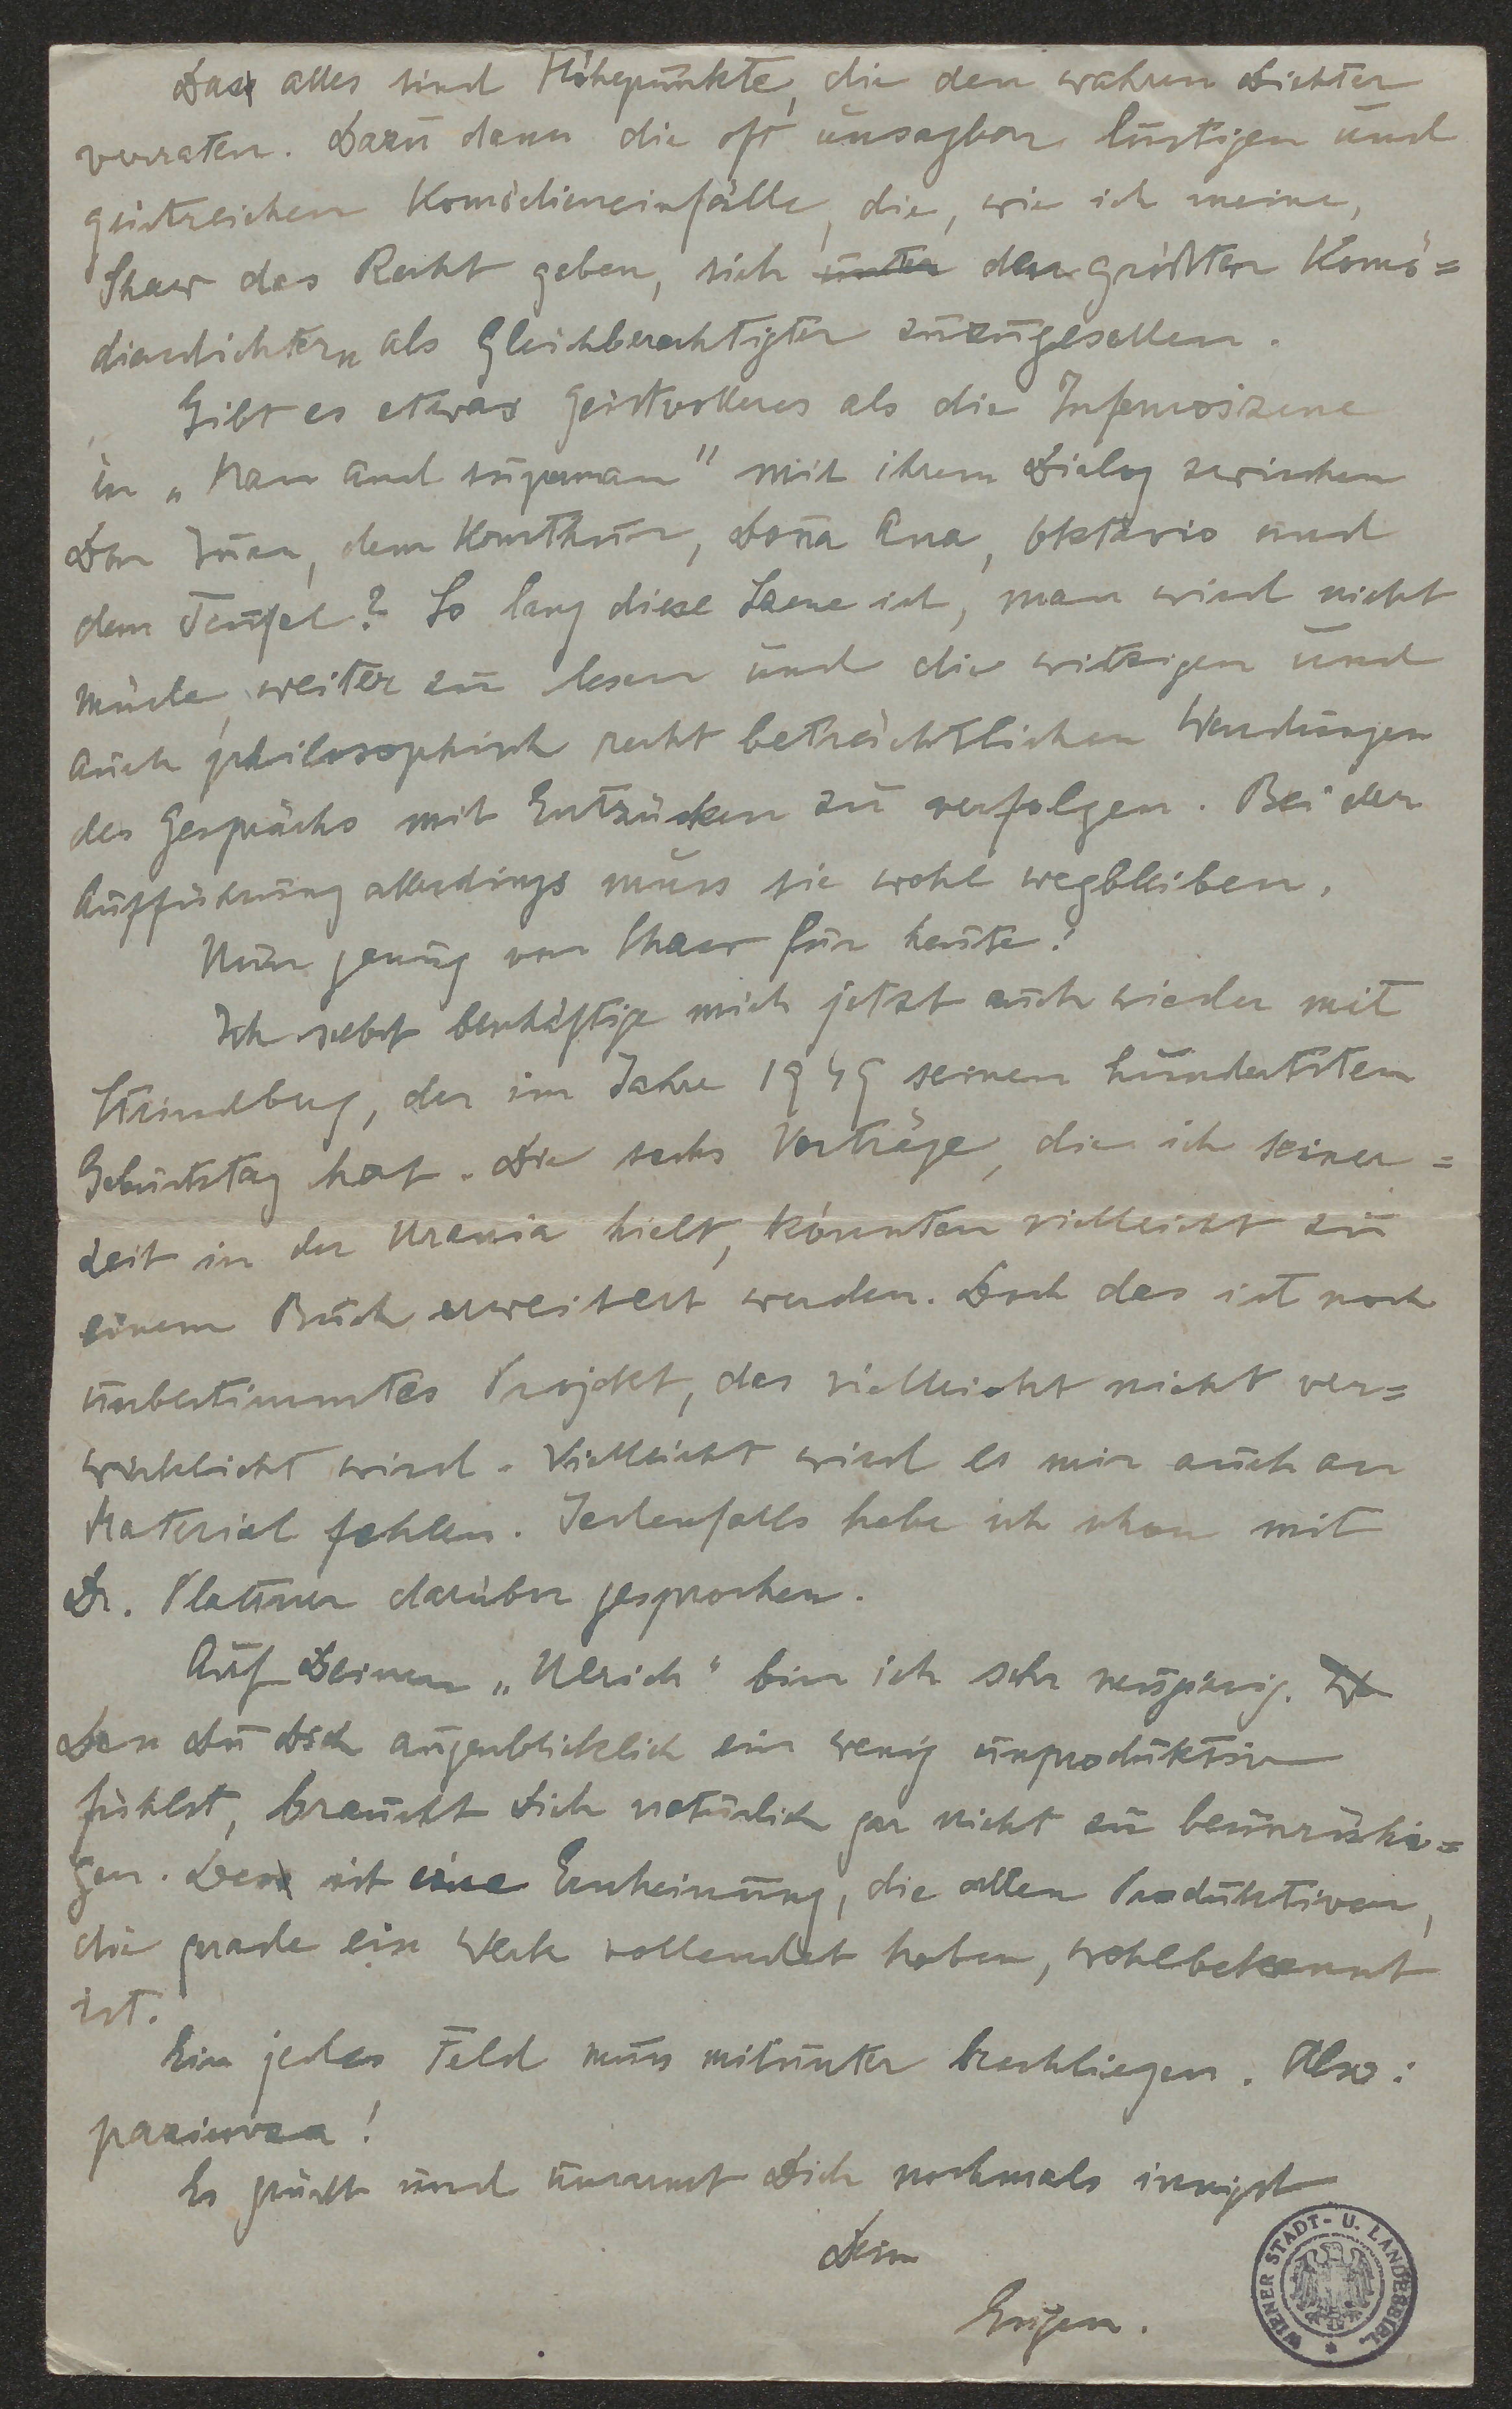 Das alles sind Höhepunkte, die den wahren Dichter
verraten. Dazu dann die oft unsagbar lustigen und
geistreichen Komödieneinfälle, die, wie ich meine,
Shaw das Recht geben, sich unter den größten Komö=
diendichtern als Gleichberechtigter zuzugesellen.
Gibt es etwas Geistvolleres als die Infernoszene
in „Man and superman" mit ihrem Dialog zwischen
Don Juan, dem Komthur, Doña Ana, Oktavio und
dem Teufel? So lang diese Szene ist, man wird nicht
müde, weiter zu lesen und die witzigen und
auch philosophisch recht beträchtlichen Wendungen
des Gesprächs mit Entzücken zu verfolgen. Bei der
Aufführung allerdings muss sie wohl wegbleiben.
Nun genug von Shaw für heute!
Ich selbst beschäftige mich jetzt auch wieder mit
Strindberg, der im Jahre 1949 seinen hundertsten
Geburtstag hat. Die sechs Vorträge, die ich seiner=
zeit in der Urania hielt, könnten vielleicht zu
einem Buch erweitert werden. Doch das ist noch
unbestimmtes Projekt, das vielleicht nicht ver=
wirklicht wird. Vielleicht wird es mir auch an
Material fehlen. Jedenfalls habe ich schon mit
Dr. Plattner darüber gesprochen.
Auf Deinen „Ulrich" bin ich sehr neugierig.
Den Du Dich augenblicklich ein wenig unproduktiv
fühlst, braucht Dich natürlich gar nicht zu beunruhi=
gen. Das ist eine Erscheinung, die allen Produktiven,
die grade ein Werk vollendet haben, wohlbekannt
ist.
Ein jedes Feld muss mitunter brachliegen. Also:
pazienza!
Es grüßt und umarmt Dich nochmals innigst
Dein
Eugen.
WIENER STADT- U. LANDESBIBL.